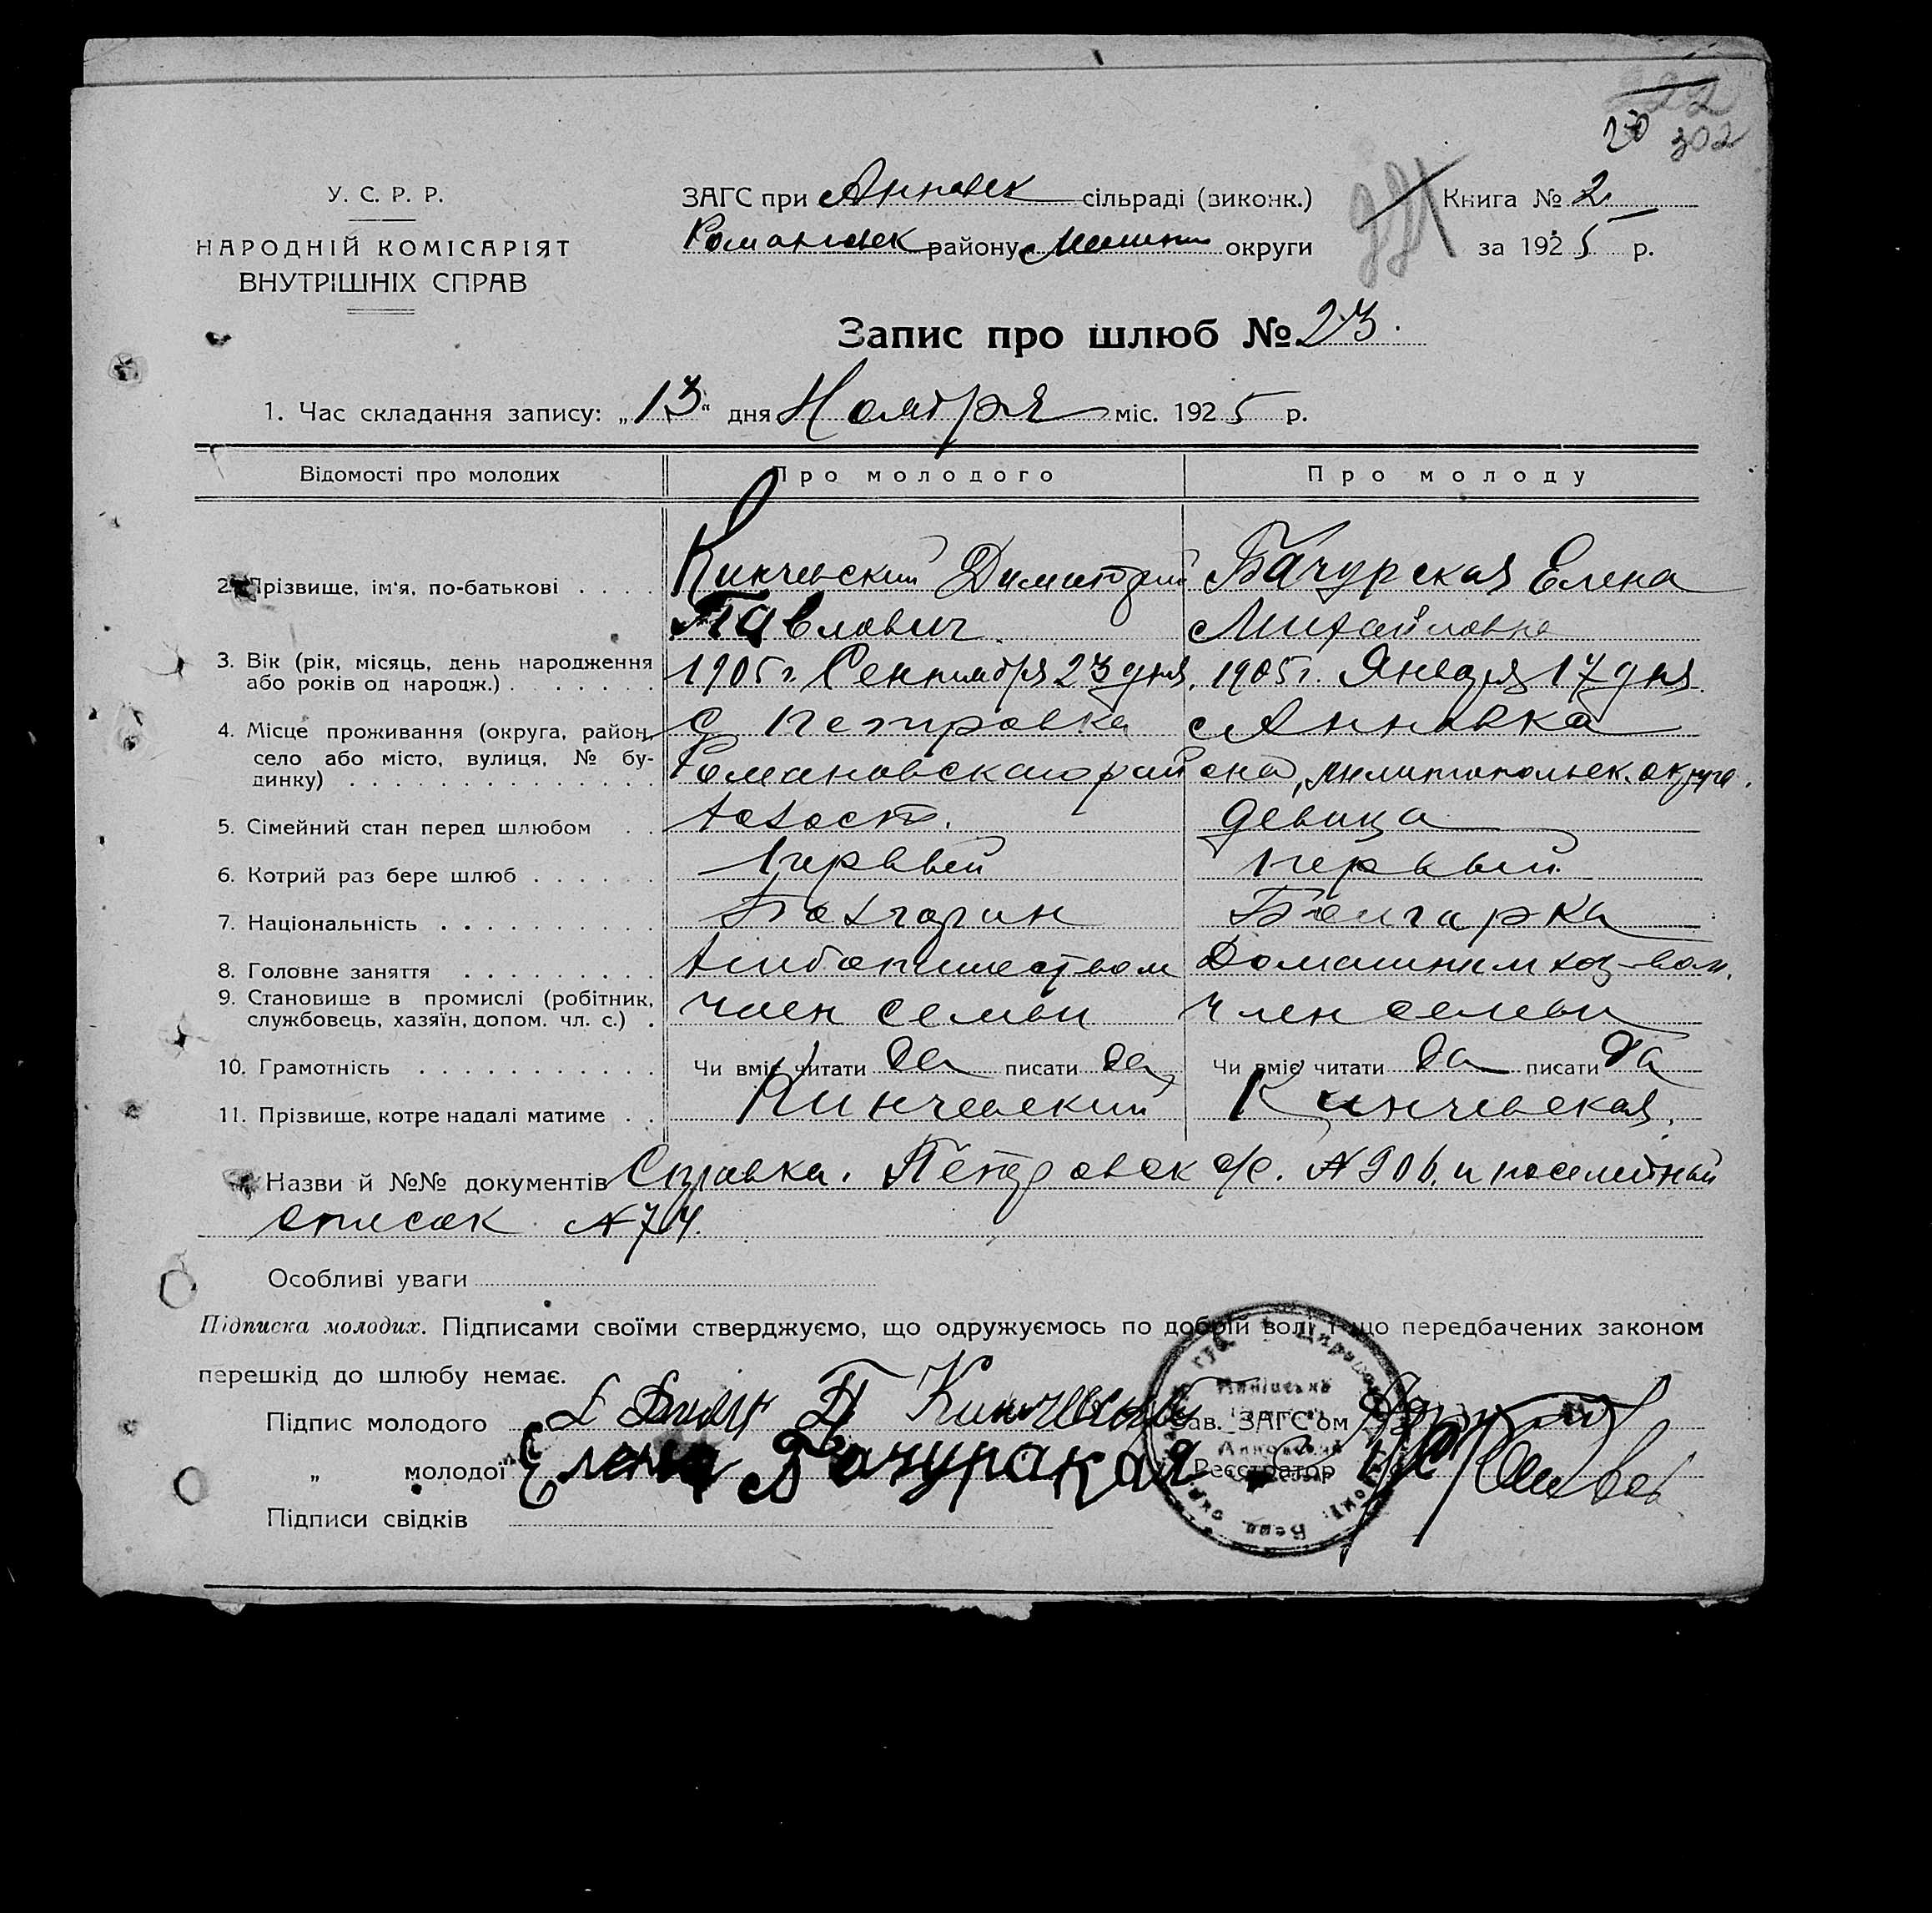 20 302
У. С. Р. Р.
НАРОДНІЙ КОМІСАРІЯТ
ВНУТРІШНІХ СПРАВ
ЗАГС при Анновск сільраді (виконк.)
Романовск району округи
Книга № 2
за 1925 р.
Запис про шлюб № 23.
1. Час складання запису: „13“ дня Ноября міс. 1925 р.
Відомості про молодих Про молодого Про молоду
2. Прізвище, ім'я, по-батькові . . . . Кинчевский Димитрий Бачурская Елена
Павлович. Михайловна
3. Вік (рік, місяць, день народження 1905 г. Сентября 23 дня. 1905 г. Января 17 дня.
або років од народж.) . . . . . . .
4. Місце проживання (округа, район, с Петровка с Анновка
село або місто, вулиця, № бу- Романовскаго района, мелитопольск. округа.
динку) . . . . . . . . . . . . . .
5. Сімейний стан перед шлюбом . . холост. девица
6. Котрий раз бере шлюб . . . . . . первый первый.
7. Національність . . . . . . . . . . Болгарин Болгарка
8. Головне заняття . . . . . . . . . хлебопашеством Домашним хоз-вом.
9. Становище в промислі (робітник, член семьи член семьи
службовець, хазяїн, допом. чл. с.) .
10. Грамотність . . . . . . . . . . . Чи вміє читати да писати да Чи вміє читати да писати да
11. Прізвище, котре надалі матиме . . Кинчевский Кинчевская.
Назви й №№ документів Справка. Петровск с/с. № 906. и посемейный
список № 74.
Особливі уваги
Підписка молодих. Підписами своїми стверджуємо, що одружуємось по добрій волі і що передбачених законом
перешкід до шлюбу немає.
Підпис молодого Кинчевский Зав. ЗАГС'ом
„ молодої Елена Бачурская Реєстратор
Підписи свідків